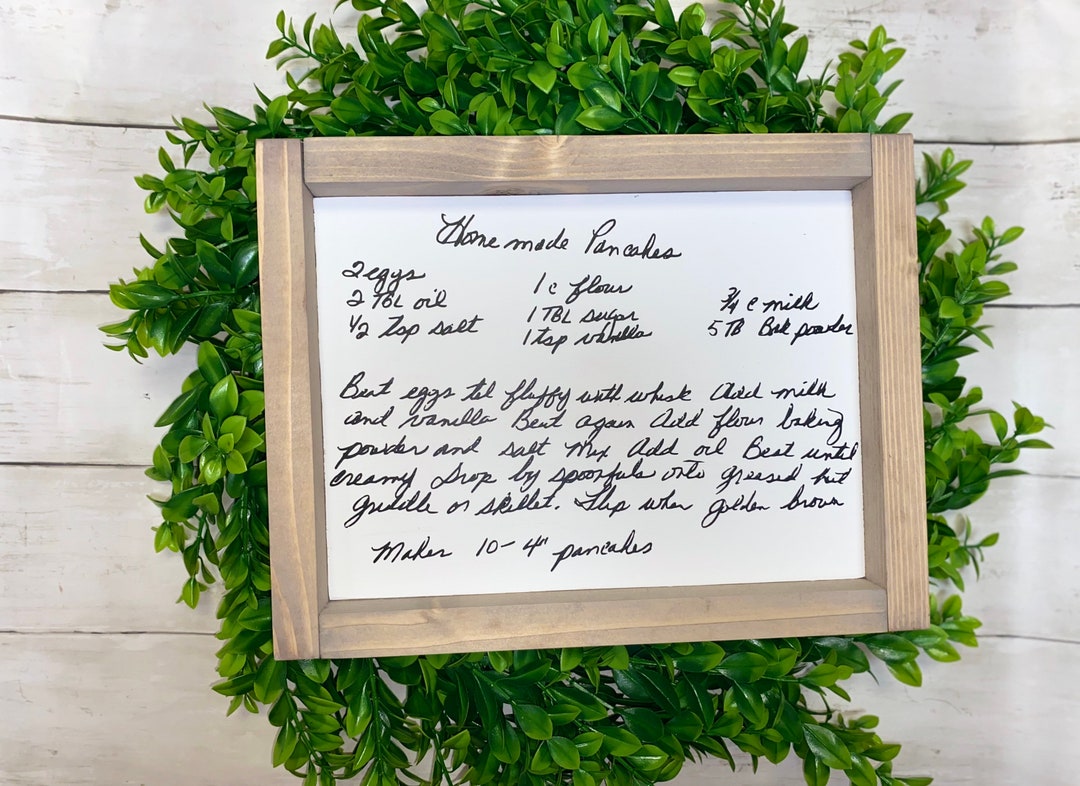 Home made Pancakes
2 eggs
2 TBL oil 1 c flour 3/4 c milk
1/2 Tsp salt 1 TBL sugar 5 TB Bak powder
1 tsp vanilla
Beat eggs til fluffy with whisk Add milk
and vanilla Beat again Add flour baking
powder and salt Mix Add oil Beat until
creamy Drop by spoonfuls onto greased hot
griddle or skillet. Flip when golden brown
Makes 10 - 4" pancakes